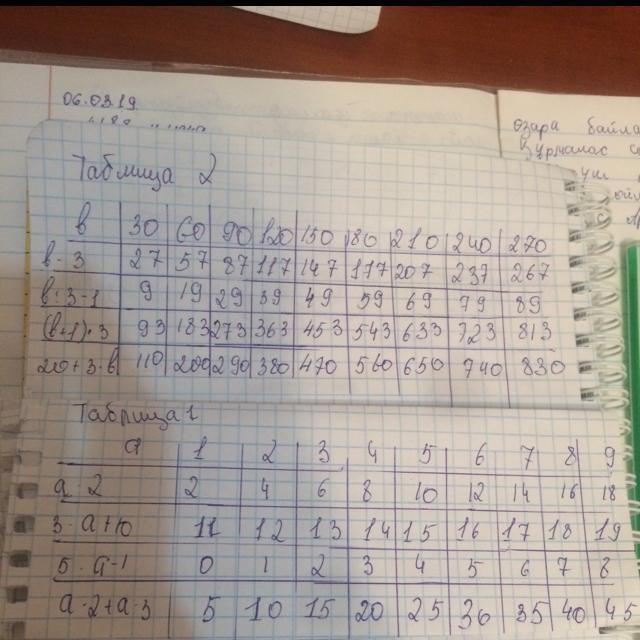 06.03.19
озара байла
Таблица 2
в 30 60 90 120 150 180 210 240 270
в-3 27 57 87 117 147 117 207 237 267
в:3-1 9 19 29 39 49 59 69 79 89
(в+1)·3 93 183 273 363 453 543 633 723 813
20+3·в 110 200 290 380 470 560 650 740 830
Таблица 1
а 1 2 3 4 5 6 7 8 9
а·2 2 4 6 8 10 12 14 16 18
3·а+10 11 12 13 14 15 16 17 18 19
5·а-1 0 1 2 3 4 5 6 7 8
а·2+а·3 5 10 15 20 25 30 35 40 45